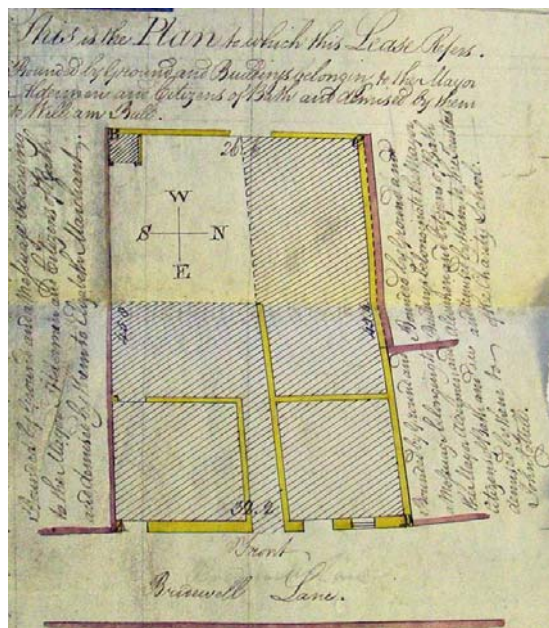 This is the Plan to which this Lease Refers.
Bounded by Ground and Buildings belongin to the Mayor
Aldermen and Citizens of Bath and demised by them
to William Bull.
B
C
W
S N
E
32.2
Front
Bridewell Lane.
Bounded by Ground and a Messuage belonging
to the Mayor Aldermen and Citizens of Bath
and demised by them to Elizabeth Marchant
Bounded by Ground and
Messuage belonging to
the Mayor Aldermen and
Citizens of Bath and
demised by them to
Bounded by Ground and
Buildings belonging to the Mayor
Aldermen and Citizens of Bath
and demised by them to the Trustees
of the Charity School.